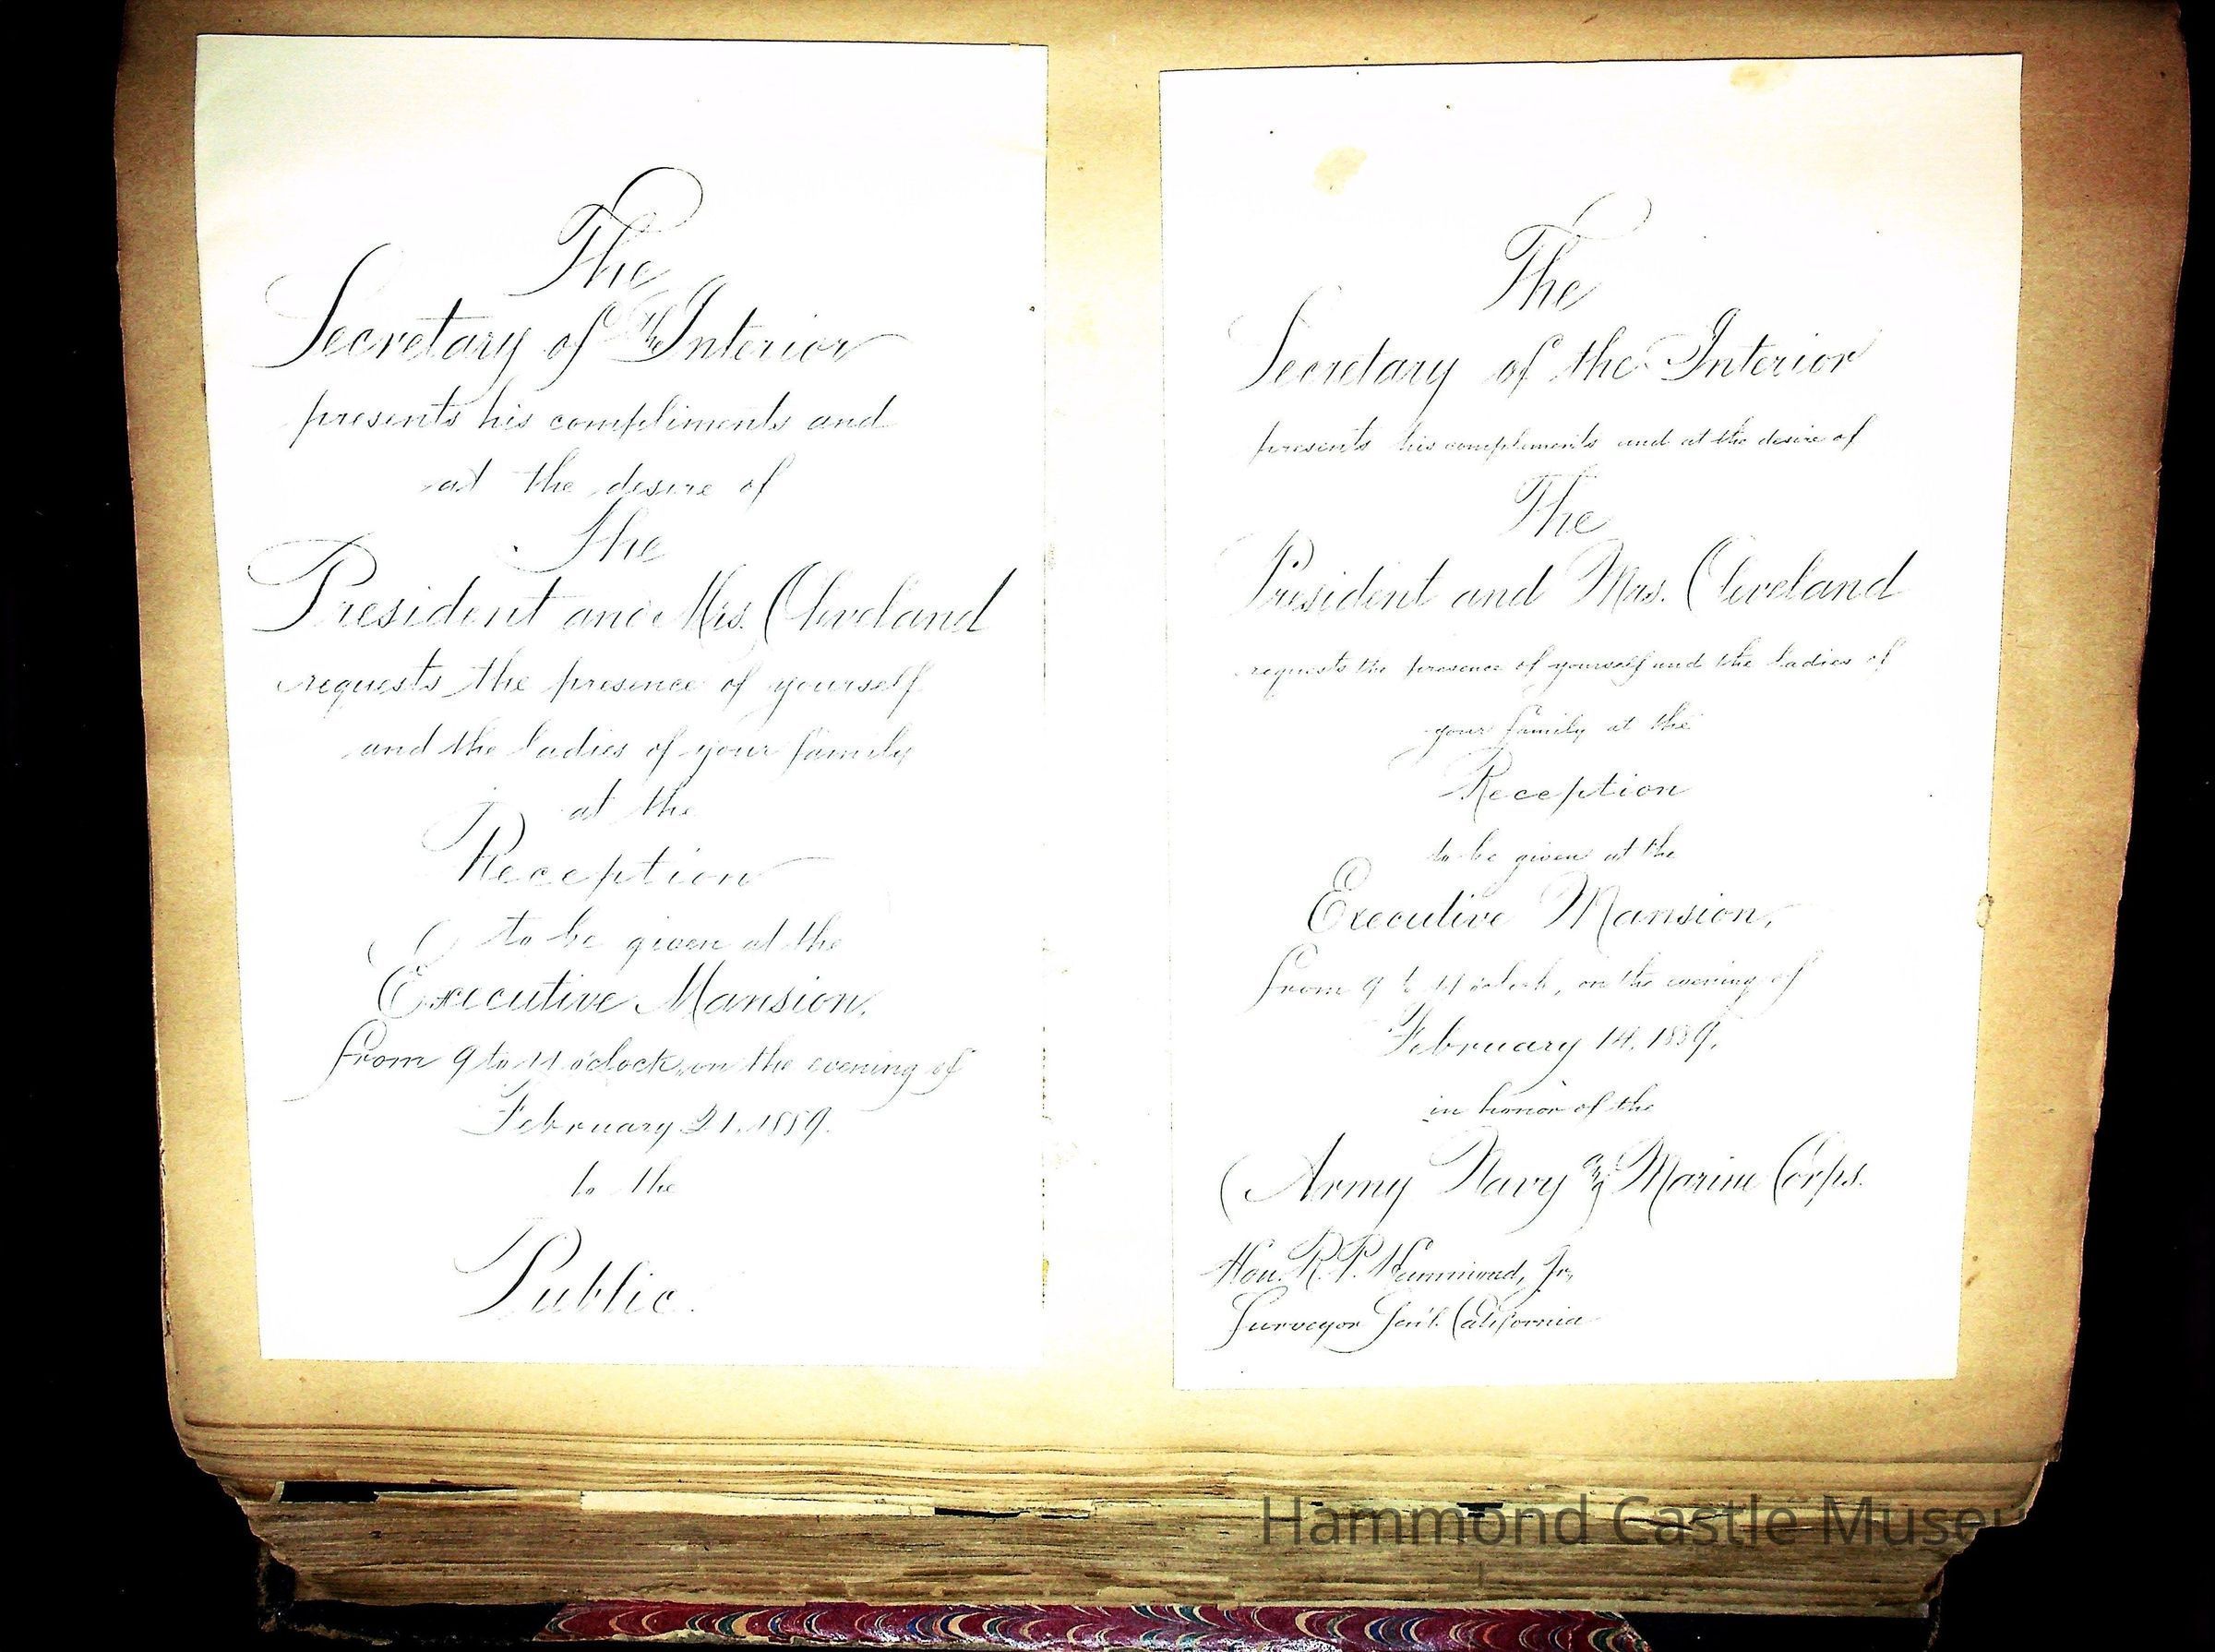 The
Secretary of the Interior
presents his compliments and
at the desire of
The
President and Mrs. Cleveland
requests the presence of yourself
and the ladies of your family
at the
Reception
to be given at the
Executive Mansion,
from 9 to 11 o'clock, on the evening of
February 21, 1889.
to the
Public.
The
Secretary of the Interior
presents his compliments and at the desire of
The
President and Mrs. Cleveland
requests the presence of yourself and the ladies of
your family at the
Reception
to be given at the
Executive Mansion,
from 9 to 11 o'clock, on the evening of
February 14, 1889,
in honor of the
Army Navy and Marine Corps.
Hon. R. P. Hammond, Jr.
Surveyor Gen'l. California
Hammond Castle Museu